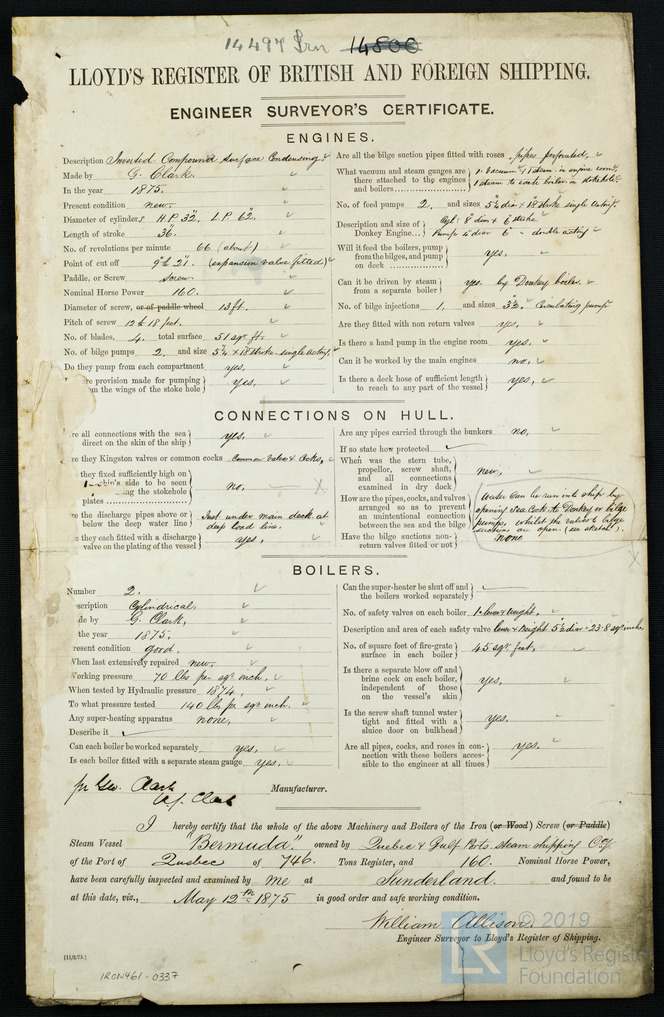 14497 Irn 14800
LLOYD'S REGISTER OF BRITISH AND FOREIGN SHIPPING.
ENGINEER SURVEYOR'S CERTIFICATE.
ENGINES.
Description Inverted Compound Surface Condensing.
Made by G. Clark.
In the year 1875.
Present condition new.
Diameter of cylinders H.P. 32", L.P. 62".
Length of stroke 36".
No. of revolutions per minute 66 (about)
Point of cut off 9" & 21". (expansion valve fitted)
Paddle, or Screw screw.
Nominal Horse Power 160.
Diameter of screw, or of paddle wheel 13 ft.
Pitch of screw 12 to 18 feet.
No. of blades, 4. total surface 51 sqr ft.
No. of bilge pumps 2. and size 5¼ × 18 stroke. single acting.
Do they pump from each compartment yes.
re provision made for pumping
om the wings of the stoke hole
yes,
Are all the bilge suction pipes fitted with roses pipes perforated,
What vacuum and steam gauges are
there attached to the engines
and boilers
1. Vacuum & 1 steam in engine room,
1 steam to each boiler in stokehole.
No. of feed pumps 2. and sizes 5¼ dia × 18 stroke single acting.
Description and size of
Donkey Engine...
Cyl: 8" dia × 6" stroke
Pump 4 dia × 6" - double acting
Will it feed the boilers, pump
from the bilges, and pump
on deck
yes.
Can it be driven by steam
from a separate boiler
yes. by Donkey boiler.
No. of bilge injections 1, and sizes 3½. Circulating pump
Are they fitted with non return valves yes,
Is there a hand pump in the engine room yes.
Can it be worked by the main engines no,
Is there a deck hose of sufficient length
to reach to any part of the vessel
yes,
CONNECTIONS ON HULL.
re all connections with the sea
direct on the skin of the ship
yes.
re they Kingston valves or common cocks Common Valves & Cocks,
they fixed sufficiently high on
ship's side to be seen
ing the stokehole
plates
no,
re the discharge pipes above or
below the deep water line
Just under main deck at
deep load line.
o they each fitted with a discharge
valve on the plating of the vessel
yes,
Are any pipes carried through the bunkers no,
If so state how protected
When was the stern tube,
propellor, screw shaft,
and all connections
examined in dry dock
new,
How are the pipes, cocks, and valves
arranged so as to prevent
an unintentional connection
between the sea and the bilge
Water can be run into ship by
opening Sea Cock to Donkey or bilge
pumps, whilst the valves to bilge
suctions are open. (see sketch).
Have the bilge suctions non-
return valves fitted or not
none
BOILERS.
Number 2.
scription Cylindrical.
de by G. Clark,
the year 1875.
resent condition good,
When last extensively repaired new.
Working pressure 70 lbs per sqr inch,
When tested by Hydraulic pressure 1874,
To what pressure tested 140 lbs pr sqr inch.
Any super-heating apparatus none,
Describe it
Can each boiler be worked separately yes,
Is each boiler fitted with a separate steam gauge yes.
Can the super-heater be shut off and
the boilers worked separately
No. of safety valves on each boiler 1 - lever & weight.
Description and area of each safety valve lever & weight 5½ dia = 23.8 sqr inches
No. of square feet of fire-grate
surface in each boiler
45 sqr feet,
Is there a separate blow off and
brine cock on each boiler,
independent of those
on the vessel's skin
yes,
Is the screw shaft tunnel water
tight and fitted with a
sluice door on bulkhead
yes.
Are all pipes, cocks, and roses in con-
nection with these boilers acces-
sible to the engineer at all times
yes.
pr Geo. Clark
Manufacturer.
I hereby certify that the whole of the above Machinery and Boilers of the Iron (or Wood) Screw (or Paddle)
Steam Vessel "Bermuda". owned by Quebec & Gulf Ports steam shipping Coy
of the Port of Quebec of 746. Tons Register, and 160. Nominal Horse Power,
have been carefully inspected and examined by me at Sunderland. and found to be
at this date, viz., May 12th 1875 in good order and safe working condition.
William Allison.
Engineer Surveyor to Lloyd's Register of Shipping.
(11/3/75.)
IRON461-0337
LR © 2019
Lloyd's Register
Foundation